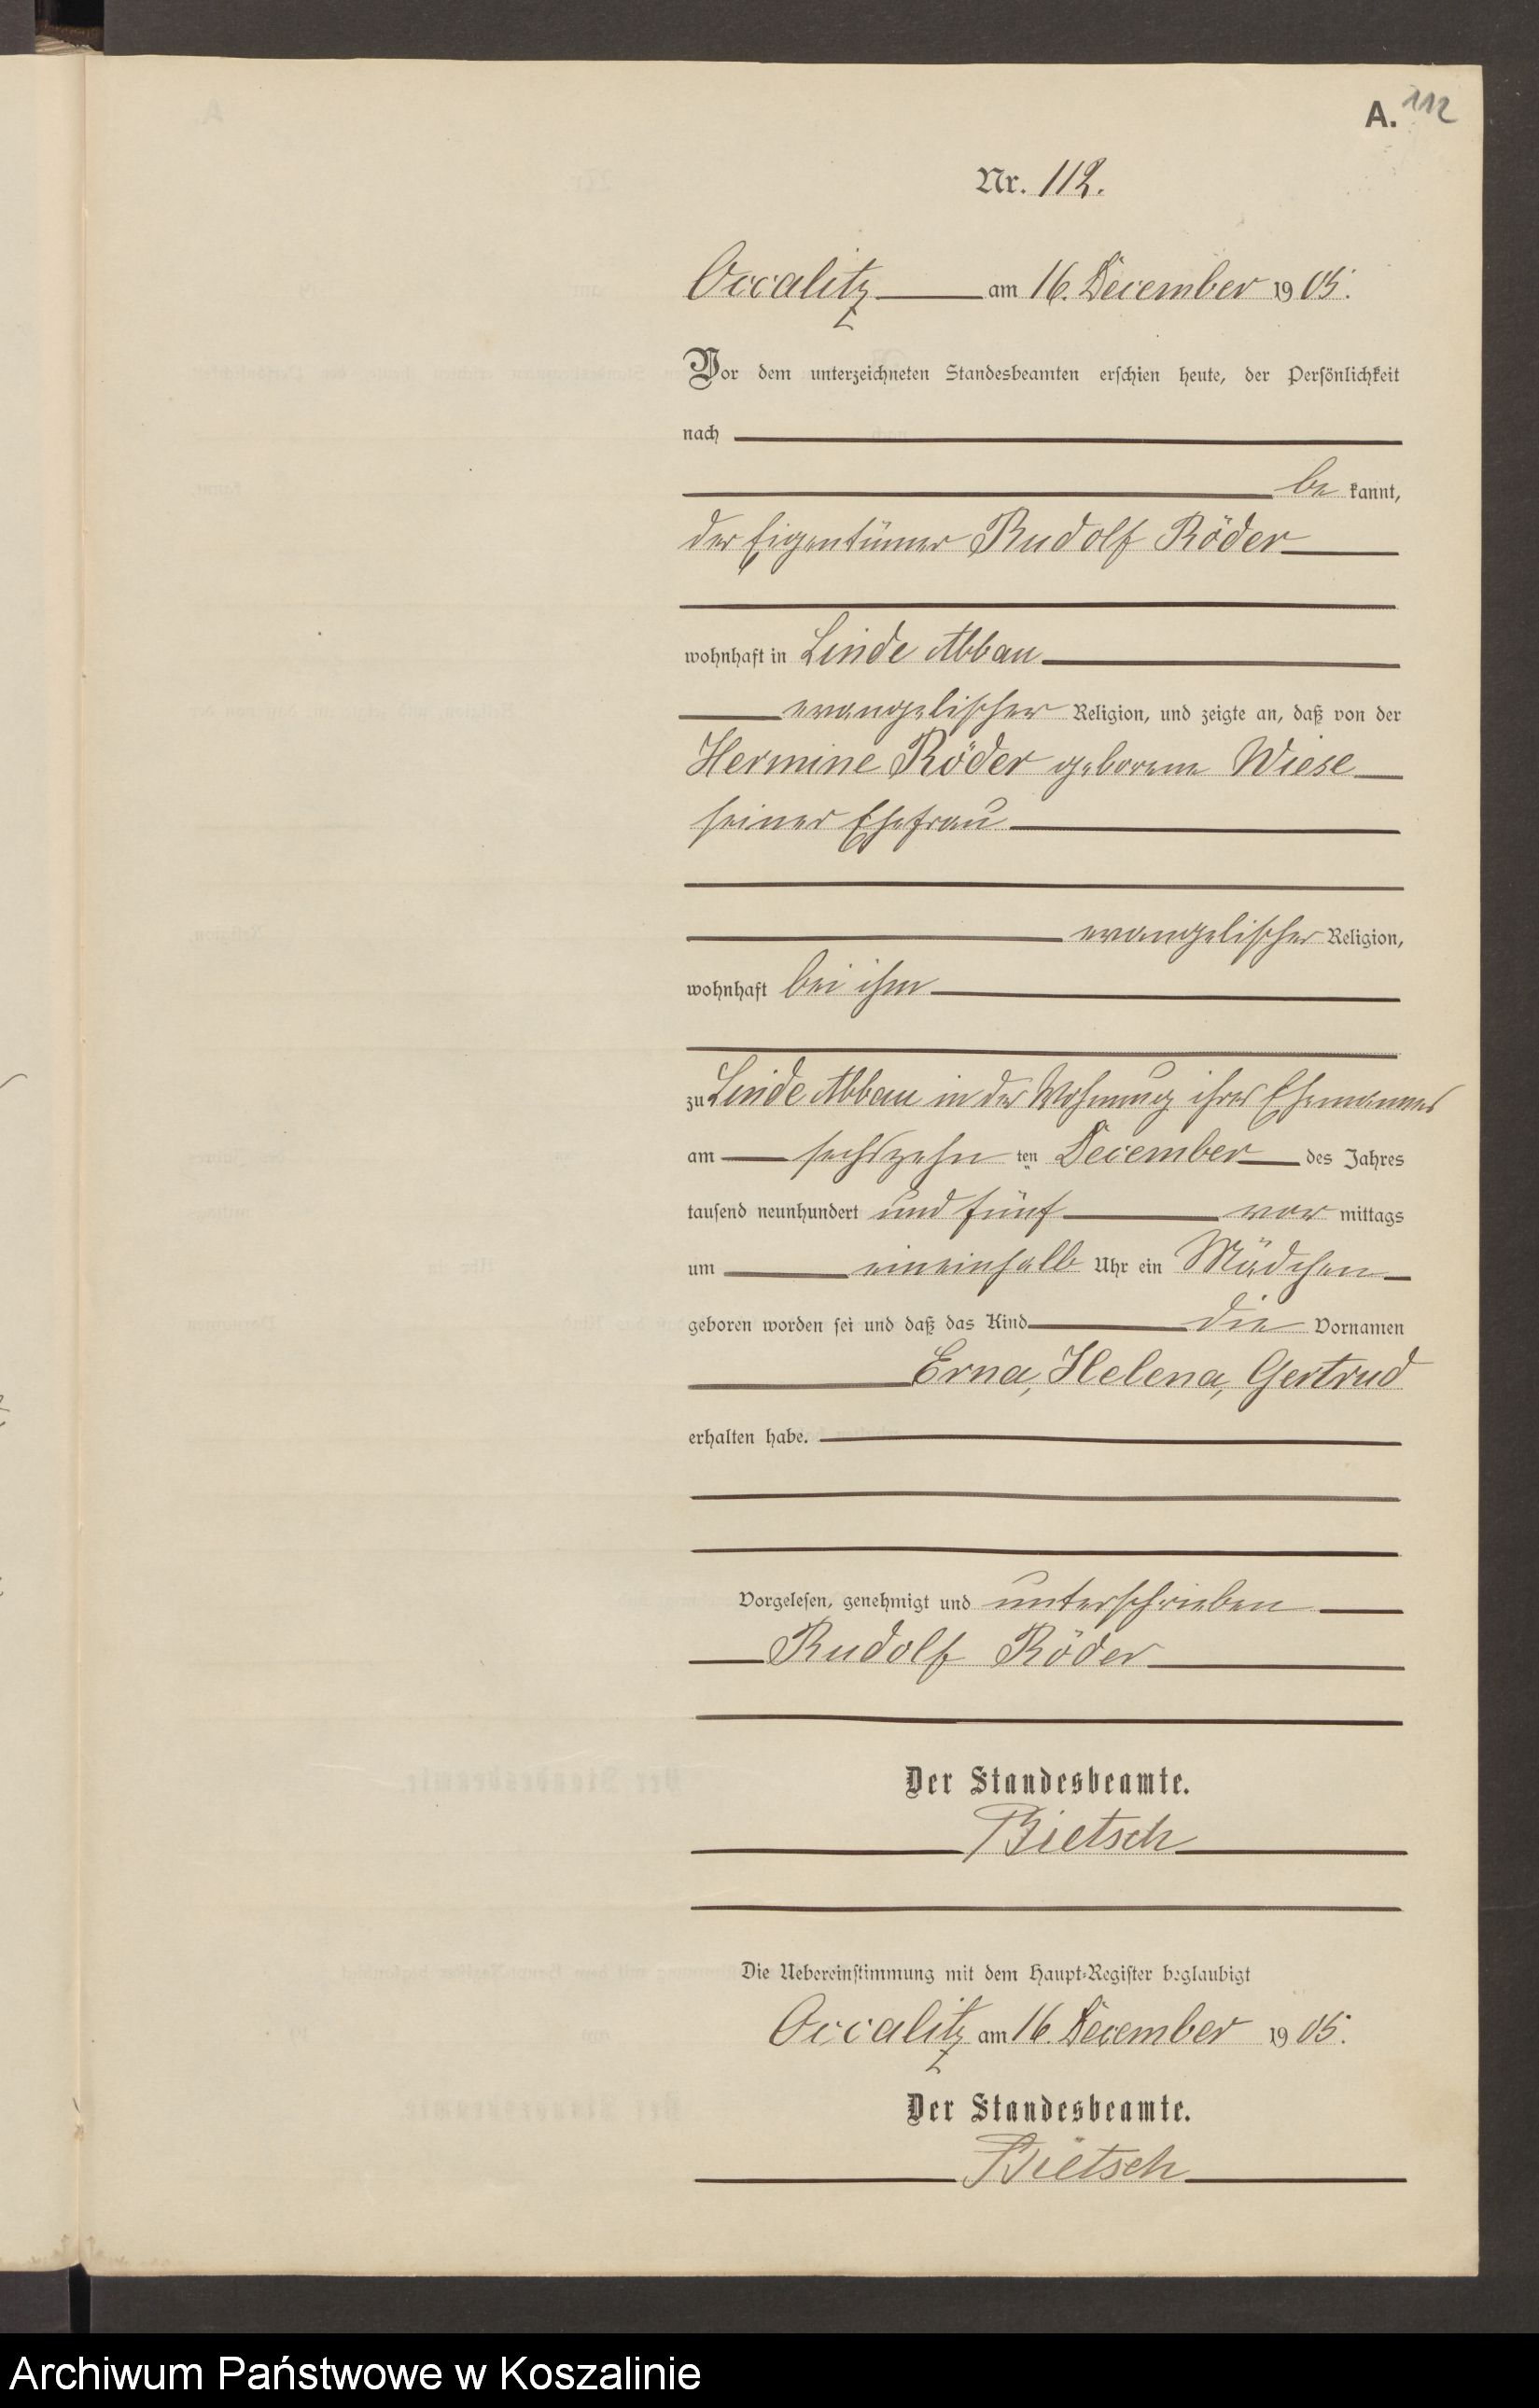 A. 112
Nr. 112.
Occalitz am 16. December 1905.
Vor dem unterzeichneten Standesbeamten erschien heute, der Persönlichkeit
nach
be kannt,
der Eigentümer Rudolf Röder
wohnhaft in Linde Abbau
evangelischer Religion, und zeigte an, daß von der
Hermine Röder geborene Wiese
seiner Ehefrau
evangelischer Religion,
wohnhaft bei ihm
zu Linde Abbau in der Wohnung ihres Ehemannes
am sechszehn ten December des Jahres
tausend neunhundert und fünf vor mittags
um eineinhalb Uhr ein Mädchen
geboren worden sei und daß das Kind die Vornamen
Erna, Helena, Gertrud
erhalten habe.
Vorgelesen, genehmigt und unterschrieben
Rudolf Röder
Der Standesbeamte.
Bietsch
Die Uebereinstimmung mit dem Haupt-Register beglaubigt
Occalitz am 16. December 1905.
Der Standesbeamte.
Bietsch
Archiwum Państwowe w Koszalinie